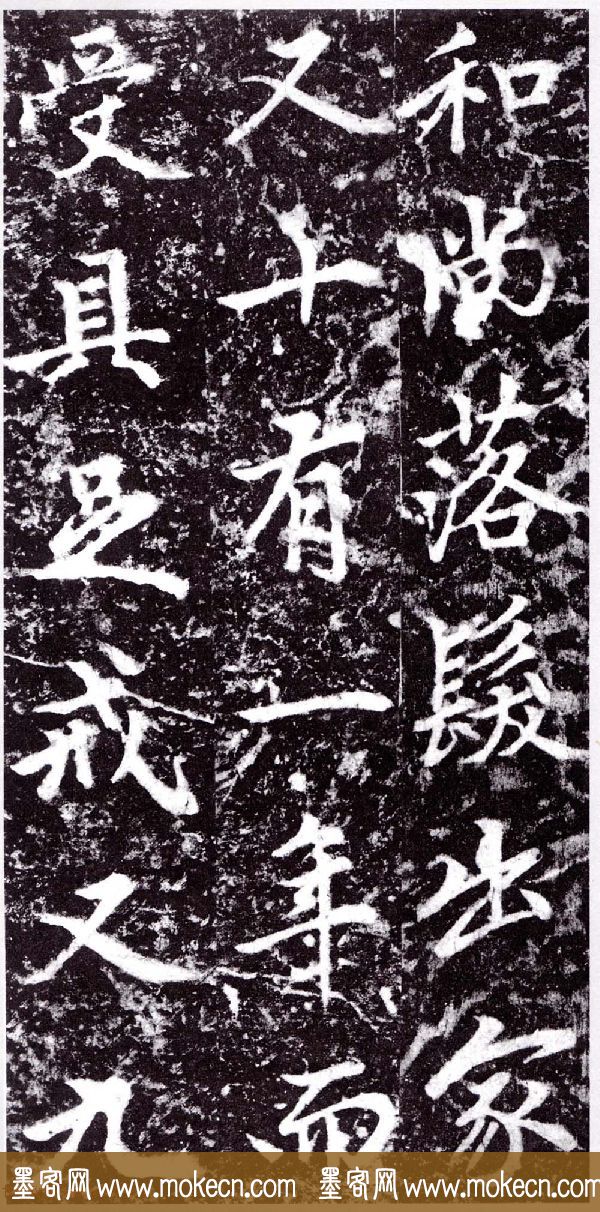 和尚落髮出家
又十有一年而
受具足戒又九
墨客网 www.mokecn.com 墨客网 www.mokecn.com